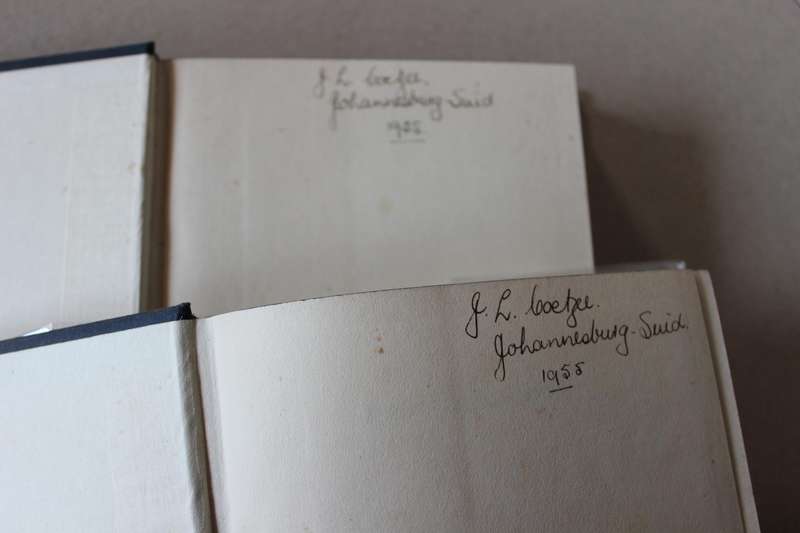 J. L. Coetzee.
Johannesburg-Suid
1955
J. L. Coetzee.
Johannesburg-Suid.
1955